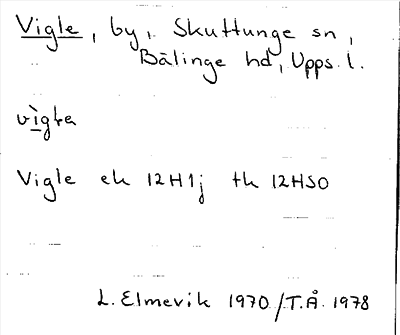 Vigle, by, Skuttunge sn,
Bälinge hd, Upps. l.
vìgla
Vigle ek 12H1j tk 12HSO
L. Elmevik 1970/T.Å. 1978